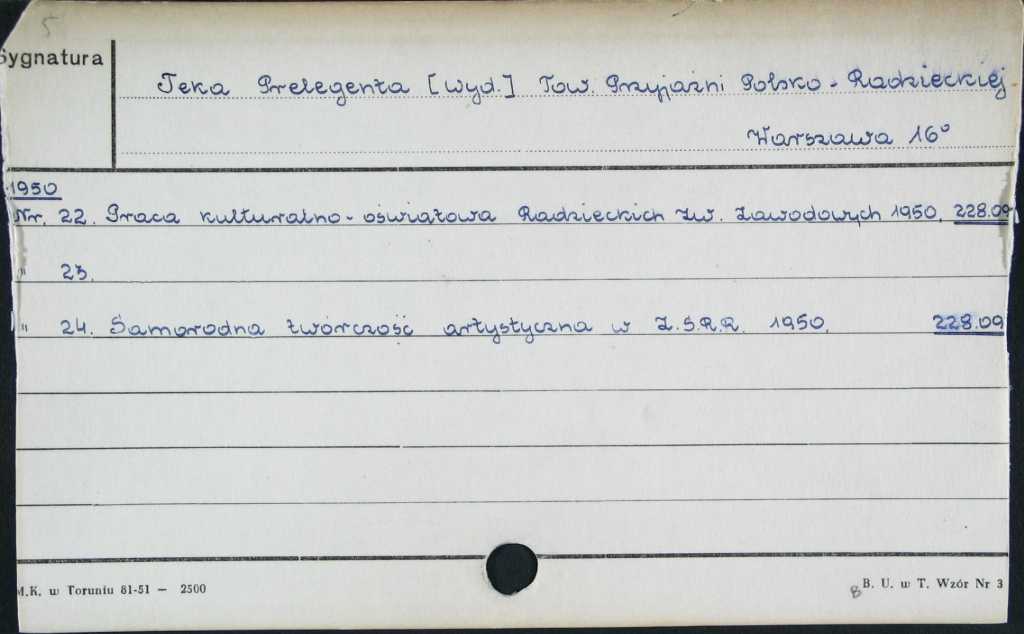 5
Sygnatura
Teka Prelegenta [wyd.] Tow. Przyjaźni Polsko-Radzieckiej
Warszawa 16°
1950
Nr. 22. Praca kulturalno-oświatowa Radzieckich Zw. Zawodowych 1950. 228.09
" 23.
" 24. Samorodna twórczość artystyczna w Z.S.R.R. 1950. 228.09
M.K. w Toruniu 81-51 — 2500
8 B. U. w T. Wzór Nr 3